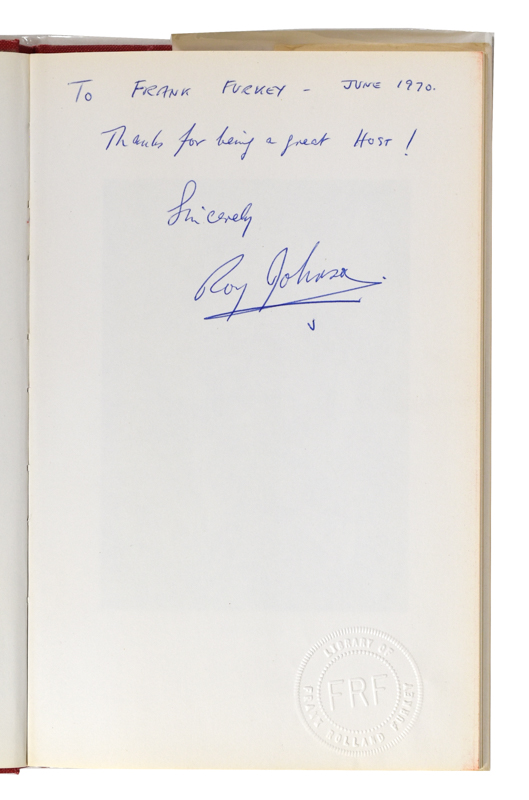 To FRANK FURKEY - JUNE 1970.
Thanks for being a great HOST!
Sincerely
Roy Johnson.
LIBRARY OF
FRF
FRANK ROLLAND FURKEY